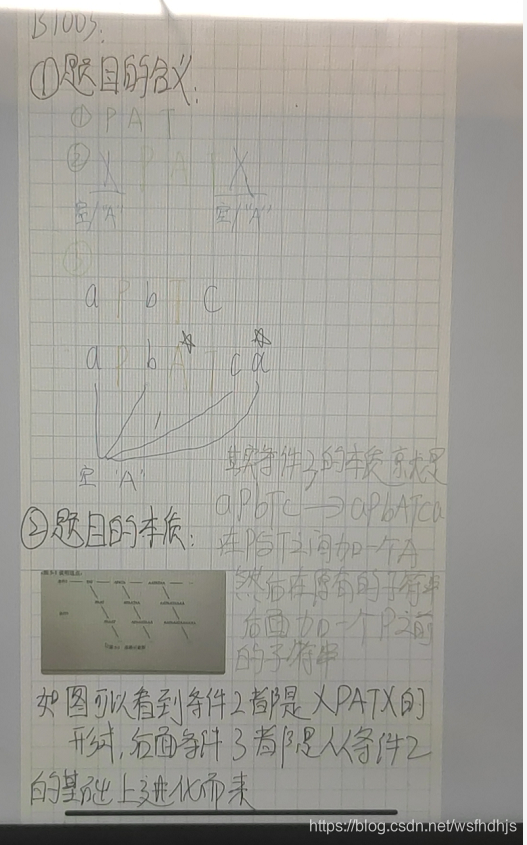 B1003:
①题目的含义:
① P A T
② X P A T X
空/"A" 空/"A"
③
a P b T c
a P b A T c a
空 "A"
其实条件3的本质就是
aPbTc → aPbATca
在P与T之间加一个A
然后在原有的子符串
后面加一个P之前
的子符串
②题目的本质:
如图可以看到条件2都是XPATX的
形式,后面条件3都是从条件2
的基础上进化而来
https://blog.csdn.net/wsfhdhjs